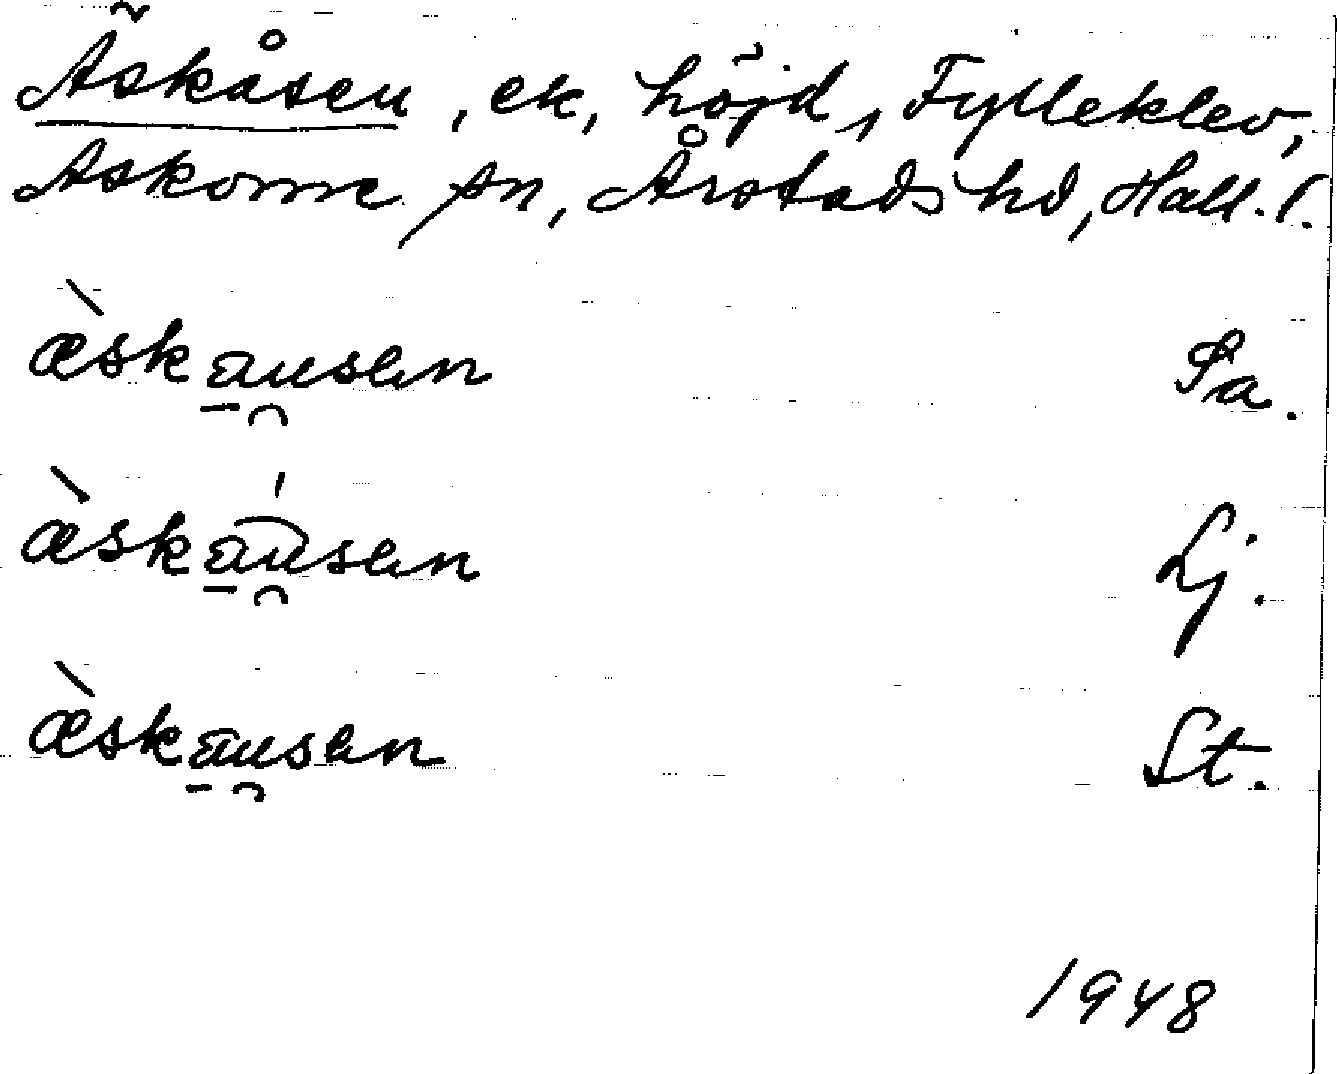 Äskåsen, ek, höjd, Fylleklev,
Askome sn, Årstads hd, Hall. l.
æ̀skau̯sen Sa.
æ̀skau̯sen Lj.
æ̀skau̯sen St.
1948